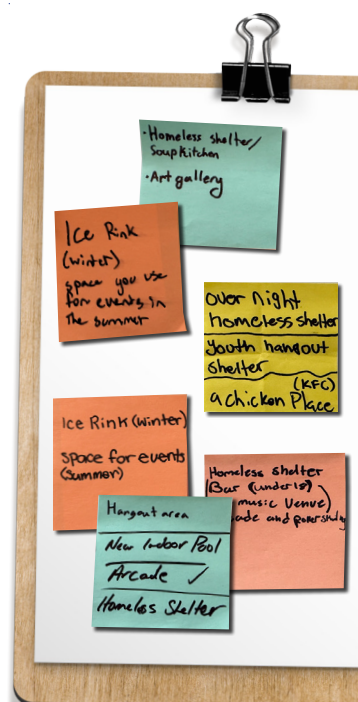 · Homeless shelter/
Soup Kitchen
· Art gallery
Ice Rink
(winter)
space you use
for events in
the summer
over night
homeless shelter
youth hangout
shelter
(KFC)
a chicken Place
Ice Rink (winter)
space for events
(summer)
Homeless shelter
Bar (under 18)
music Venue)
cade and
Hangout area
New Indoor Pool
Arcade ✓
Homeless Shelter